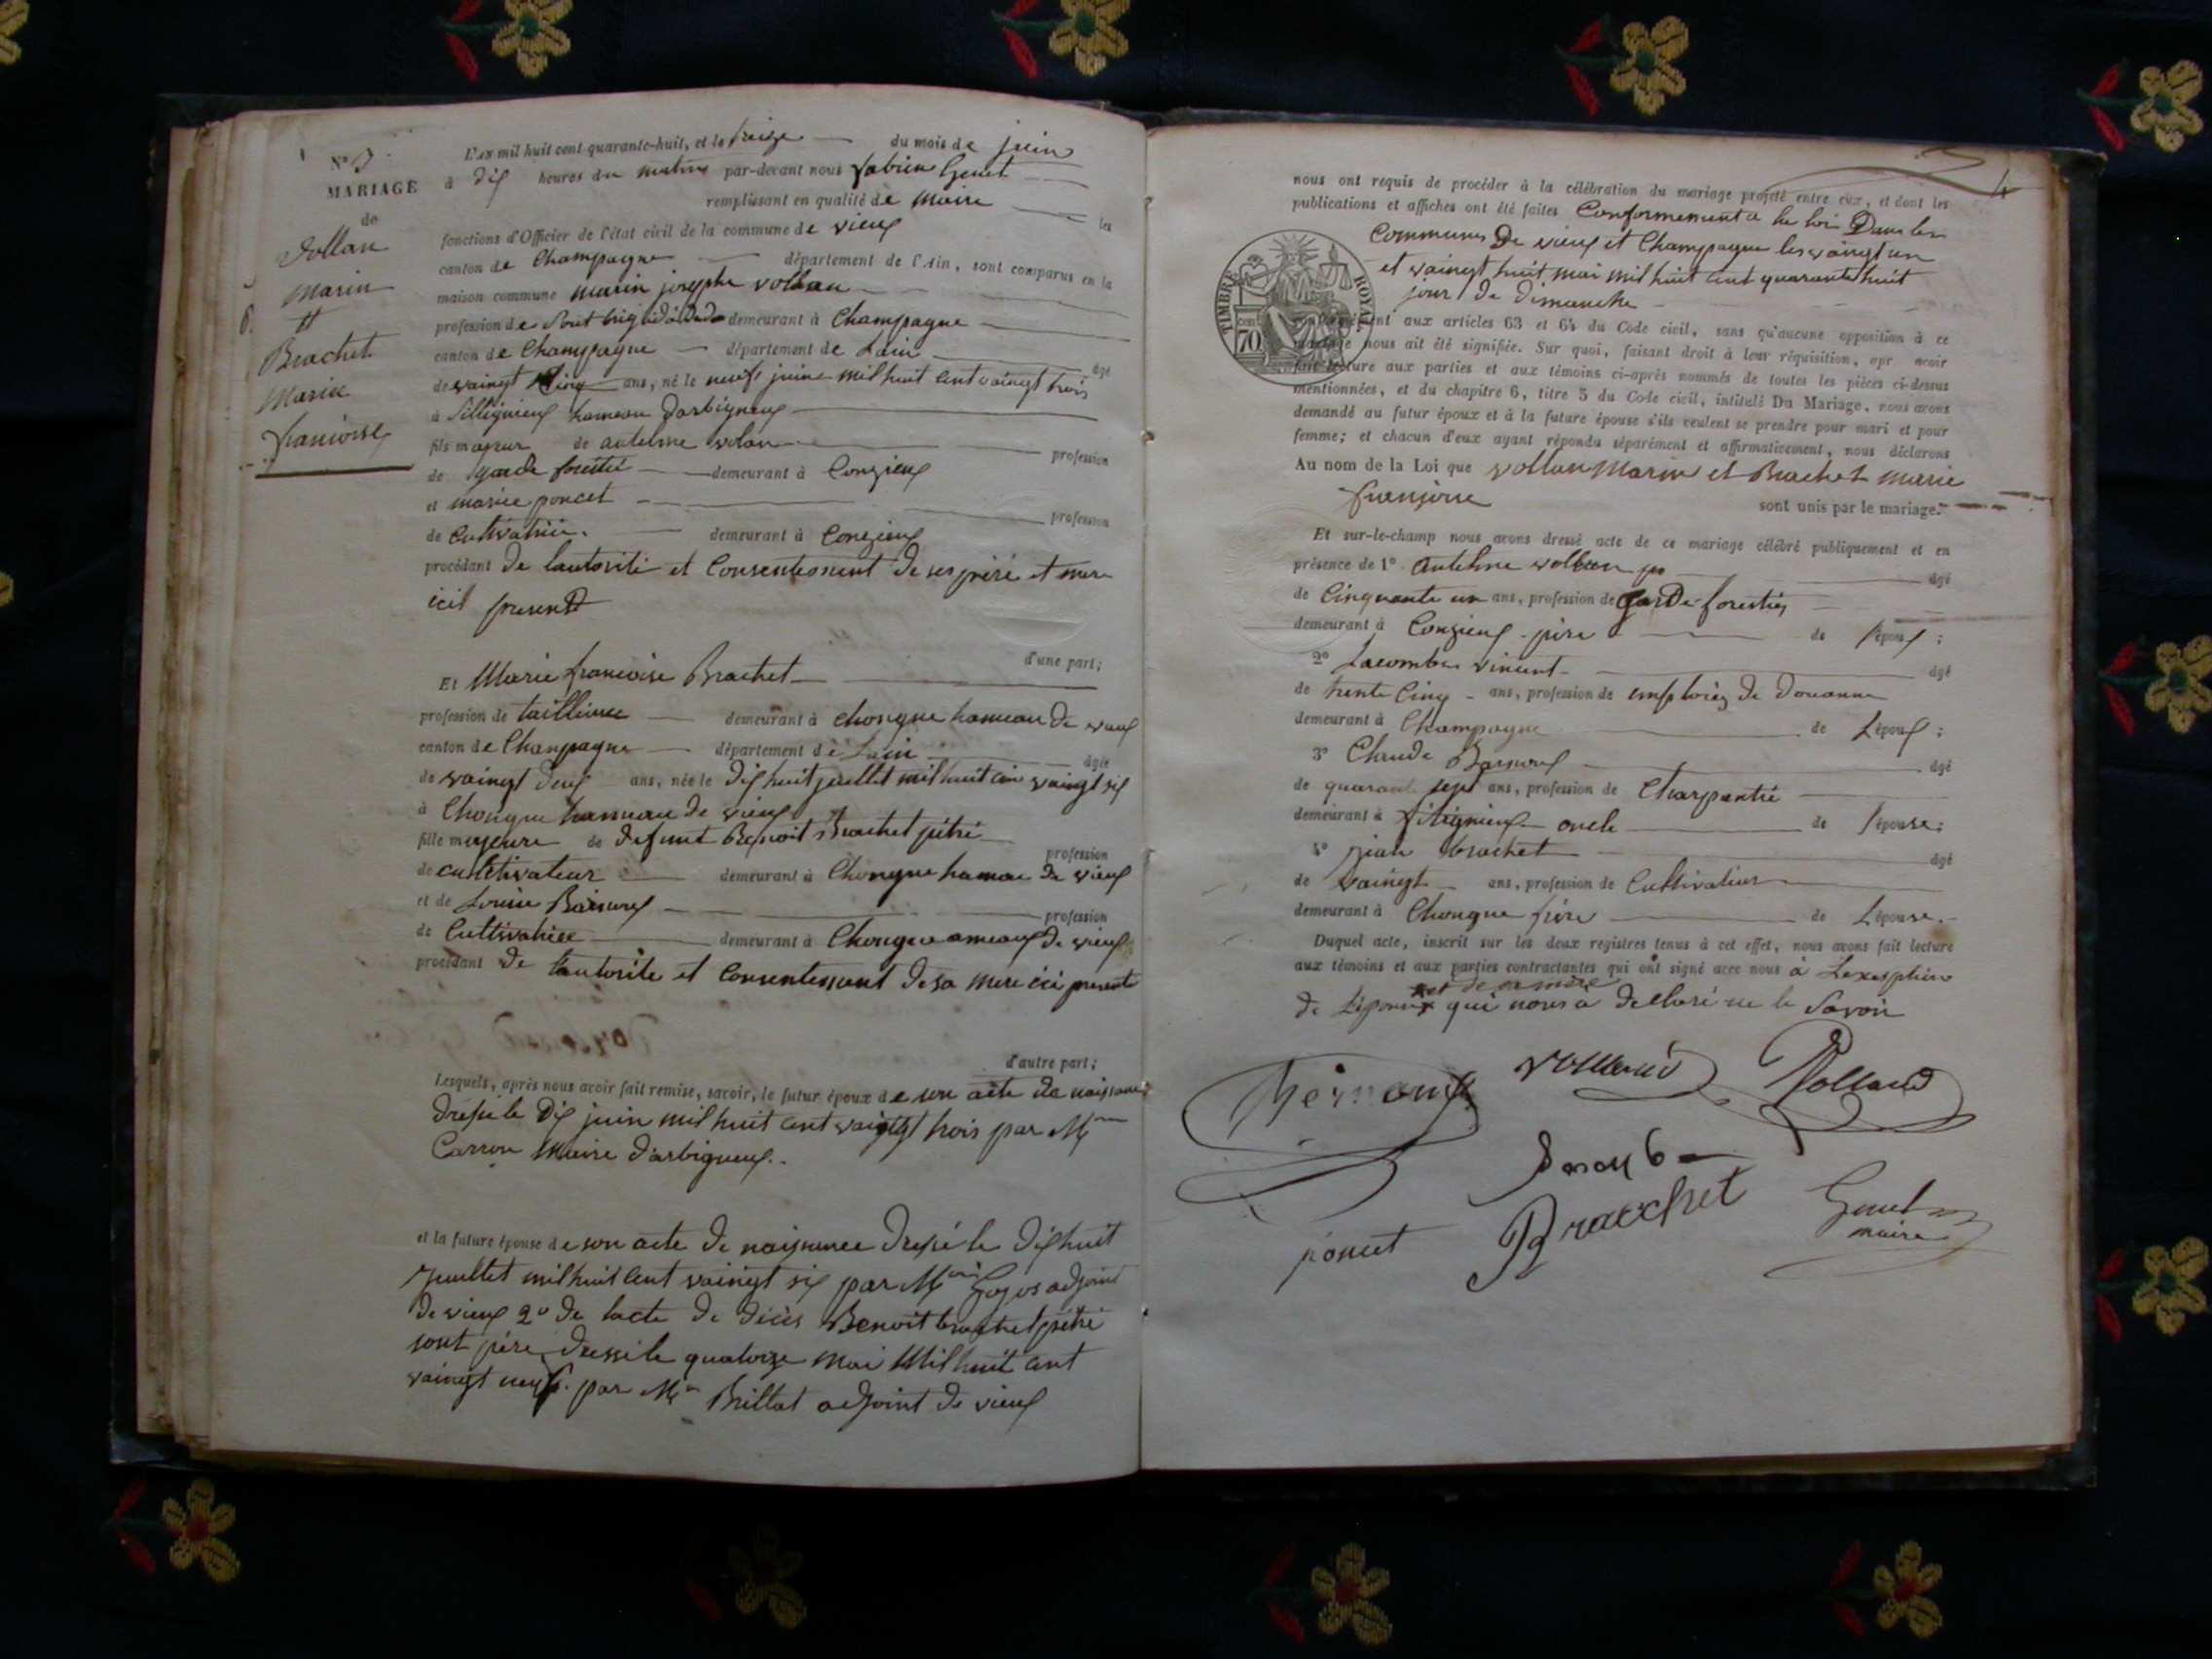 N° 3
MARIAGE
de
Vollan
Marin
et
Brachet
Marie
francoise
L'an mil huit cent quarante-huit, et le treize du mois de juin
à dix heures du matin par-devant nous fabien Genet
remplissant en qualité de Maire les
fonctions d'Officier de l'état civil de la commune de vieux
canton de Champagne département de l'Ain, sont comparus en la
maison commune marin josephe vollan
profession de demeurant à Champagne
canton de Champagne département de Lain âgé
de vaingt Cinq ans, né le neuf juin mil huit cent vaingt trois
à Sillignieux hameau darbigneux
fils majeur de antelme volan profession
de garde forestié demeurant à Conzieux
et mariee poncet profession
de Cultivatrice. demeurant à Conzieux
procédant de lautorité et Consentement de ses père et mere
icit present
d'une part;
Et Marie francoise Brachet
profession de tailleuse demeurant à chongne hameau de vieux
canton de Champagne département de Lain âgée
de vaingt deux ans, née le dix huit juillet mil huit cen vaingt six
à Chongne hameau de vieux
fille majeure de defunt Benoit Brachet pétré profession
de cultivateur demeurant à Chongne hamau de vieux
et de Louise profession
de Cultivatrice demeurant à Chongne ameaux de vieux
procédant de lautorite et Consentement de sa mere ici presente
d'autre part;
Lesquels, après nous avoir fait remise, savoir, le futur époux de son acte de naissance
dressé le dix juin mil huit cent vaingt trois par Mr
Carron Maire darbigneux.
et la future épouse de son acte de naissance dressé le dix huit
juillet mil huit cent vaingt six par Gojos adjoint
de vieux 2° de lacte de décès Benoit brachet pétré
sont père dressé le quatorze mai Mil huit cent
vaingt neuf. par Mr Brillat adjoint de vieux
4
nous ont requis de procéder à la célébration du mariage projeté entre eux, et dont les
publications et affiches ont été faites Conformement a la loi Dans les
Communes De vieux et Champagne les vaingt un
et vaingt huit mai mil huit cent quarante huit
jour de dimanche
TIMBRE ROYAL
cent 70
conformément aux articles 63 et 64 du Code civil, sans qu'aucune opposition à ce
mariage nous ait été signifiée. Sur quoi, faisant droit à leur réquisition, apr avoir
fait lecture aux parties et aux témoins ci-après nommés de toutes les pièces ci-dessus
mentionnées, et du chapitre 6, titre 5 du Code civil, intitulé Du Mariage, nous avons
demandé au futur époux et à la future épouse s'ils veulent se prendre pour mari et pour
femme; et chacun d'eux ayant répondu séparément et affirmativement, nous déclarons
Au nom de la Loi que vollan Marin et Brachet marie
franjoise sont unis par le mariage.
Et sur-le-champ nous avons dressé acte de ce mariage célébré publiquement et en
présence de 1° antelme vollan âgé
de Cinquante un ans, profession de garde forestiés
demeurant à Conzieux père de lépoux;
2° Lacombe vincent âgé
de trente Cinq ans, profession de emploiez de Douanne
demeurant à Champagne de Lépoux;
3° Claude âgé
de quarante sept ans, profession de Charpantié
demeurant à oncle de lépouse;
4° jean brachet âgé
de vaingt ans, profession de Cultivateur
demeurant à Chongne frère de Lépouse.
Duquel acte, inscrit sur les deux registres tenus à cet effet, nous avons fait lecture
aux témoins et aux parties contractantes qui ont signé avec nous à Lexesption
et de sa mère
de Lépouse qui nous a declaré ne le Savoir
volland Volland
poncet Bracchet Genet
maire